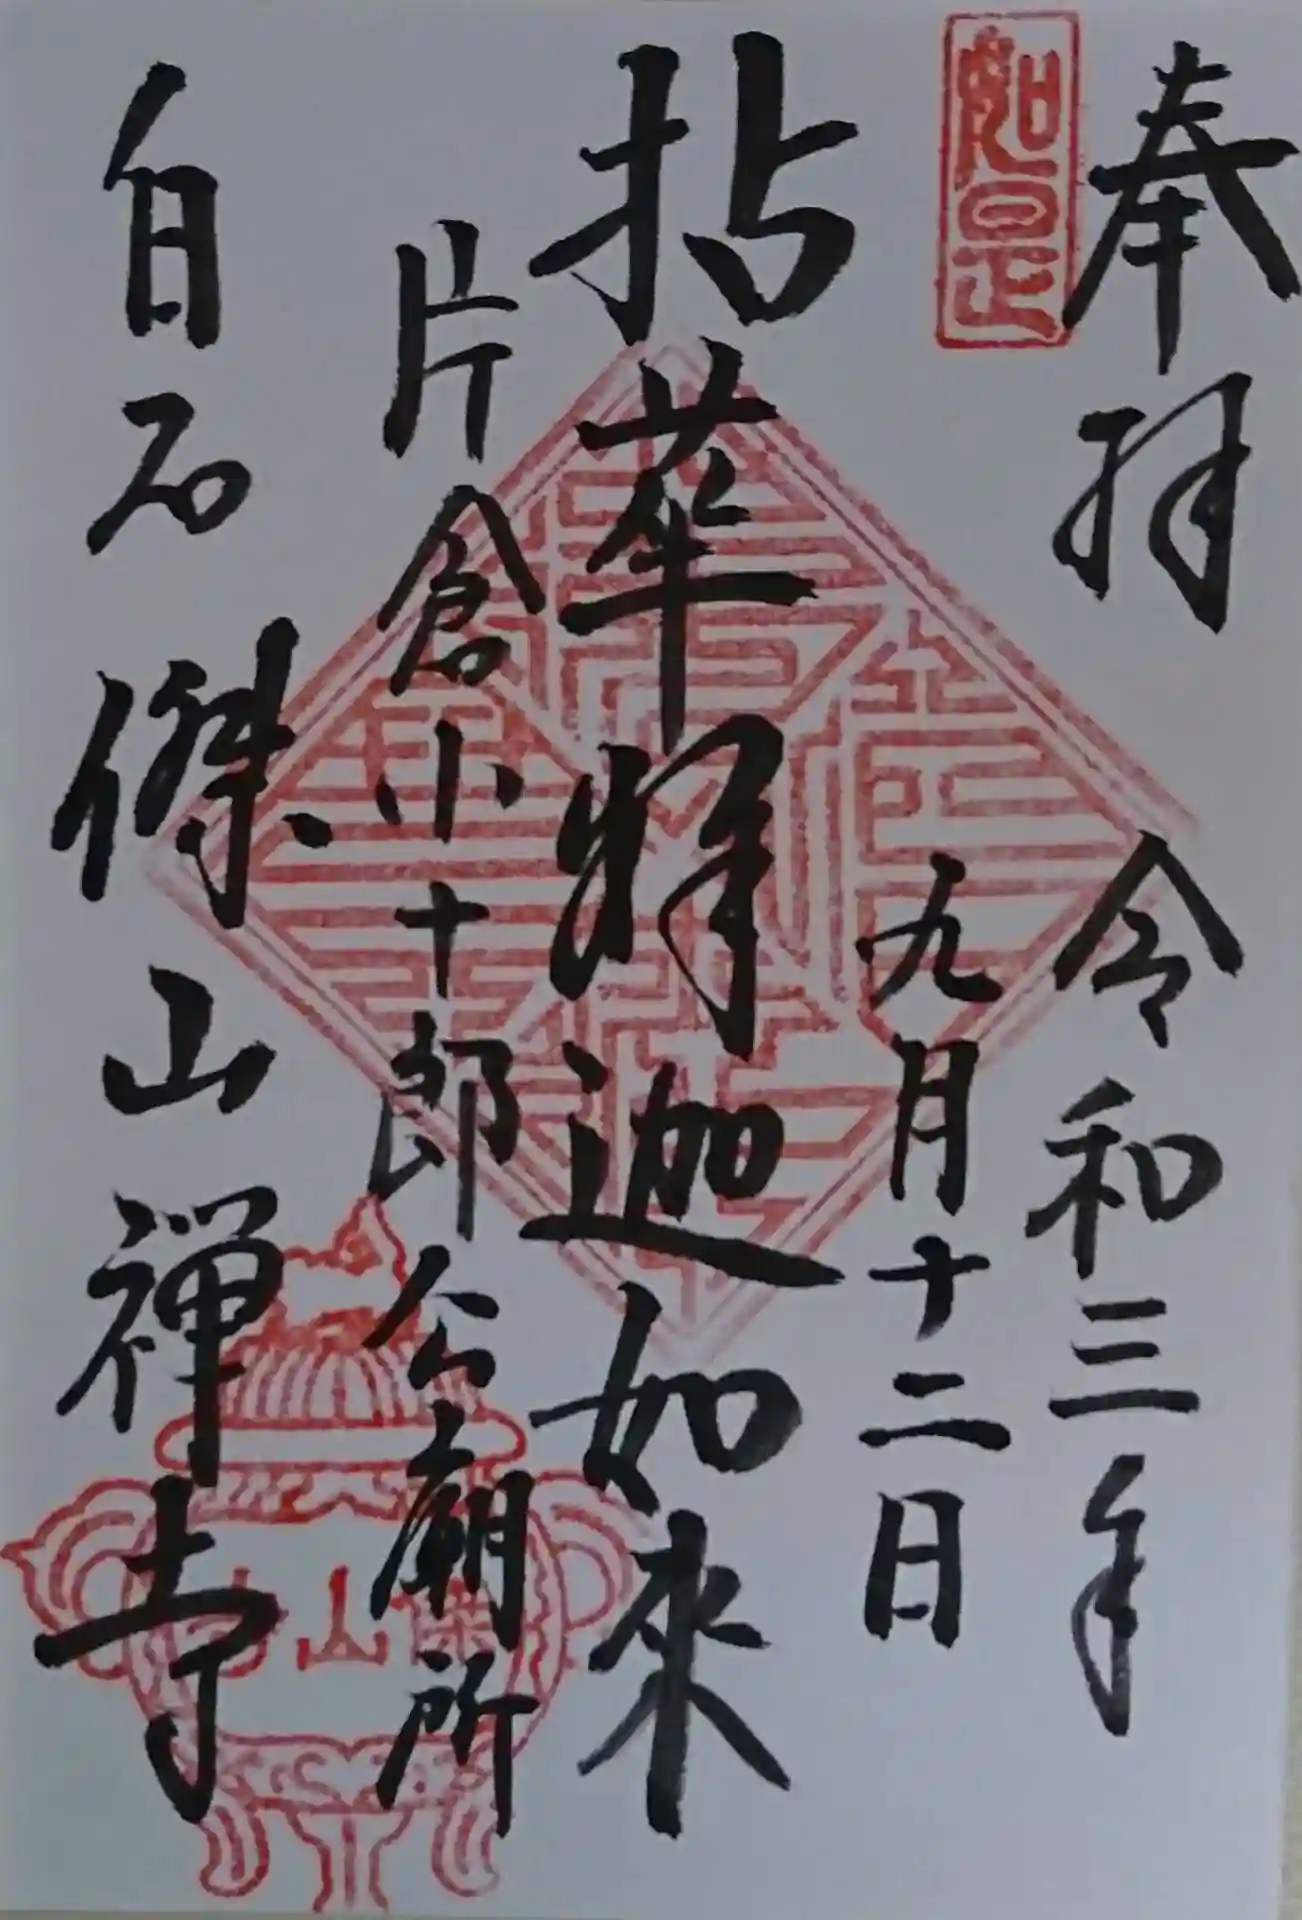 奉拝
令和三年
如是
九月十二日
拈華釋迦如來
片倉小十郎公廟所
白石傑山禅寺